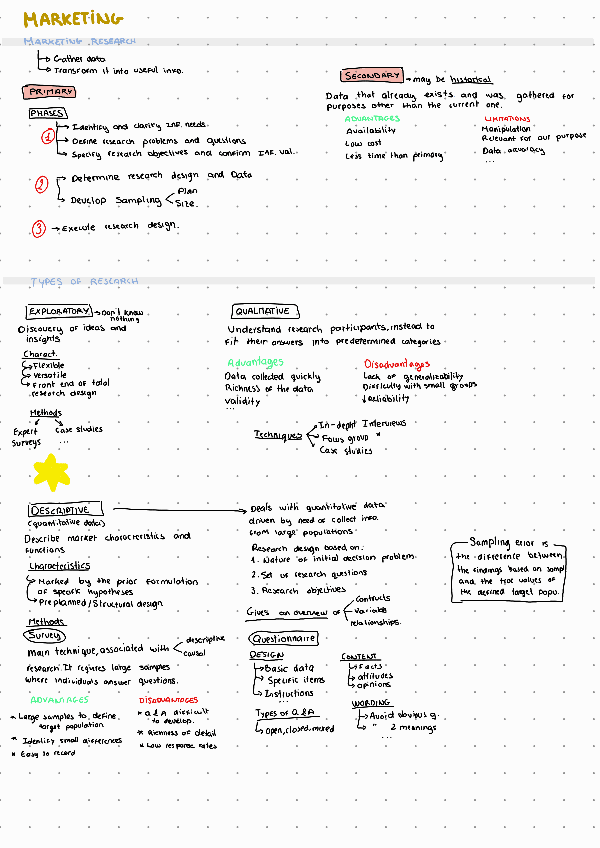 MARKETING
MARKETING RESEARCH
Gather data
Transform it into useful info.
PRIMARY
PHASES
1
Identify and clarify INF. needs.
Define research problems and questions
Specify research objectives and confirm INF. val.
2
Determine research design and Data
Develop Sampling
Plan
Size.
3 → Execute research design.
SECONDARY → may be historical
Data that already exists and was gathered for
purposes other than the current one.
ADVANTAGES
Availability
Low cost
Less time than primary
LIMITATIONS
Manipulation
Relevant for our purpose
Data accuracy
...
TYPES OF RESEARCH
EXPLORATORY → Don't know
nothing
Discovery of ideas and
insights
Charact.
Flexible
Versatile
Front end of total
research design
Methods
Expert
Surveys
Case studies
...
QUALITATIVE
Understand research participants, instead to
fit their answers into predetermined categories.
Advantages
Data collected quickly
Richness of the data
Validity
...
Disadvantages
Lack of generalizability
Difficulty with small groups
↓ Reliability
Techniques
In-depht Interviews
Focus group *
Case studies
DESCRIPTIVE
(quantitative data)
Describe market characteristics and
functions
Characteristics
Marked by the prior formulation
of specific hypotheses
Preplanned/Structural design
Methods
Survey
main technique, associated with
descriptive
causal
research. It requires large samples
where individuals answer questions.
ADVANTAGES
* Large samples to define
target population
* Identify small differences
* Easy to record
DISADVANTAGES
* Q&A difficult
to develop.
* Richness of detail
* Low response rates
Deals with quantitative data
driven by need of collect info.
from large populations.
Research design based on:
1. Nature of initial decision problem.
2. Set of research questions
3. Research objectives
Gives an overview of
Constructs
Variable
relationships.
Questionnaire
DESIGN
Basic data
Specific items
Instructions
...
Types of Q&A
Open, closed, mixed
CONTENT
Facts
attitudes
opinions
WORDING
Avoid obvious q.
" 2 meanings
...
Sampling error is
the difference between
the findings based on sampl
and the true values of
the defined target popu.